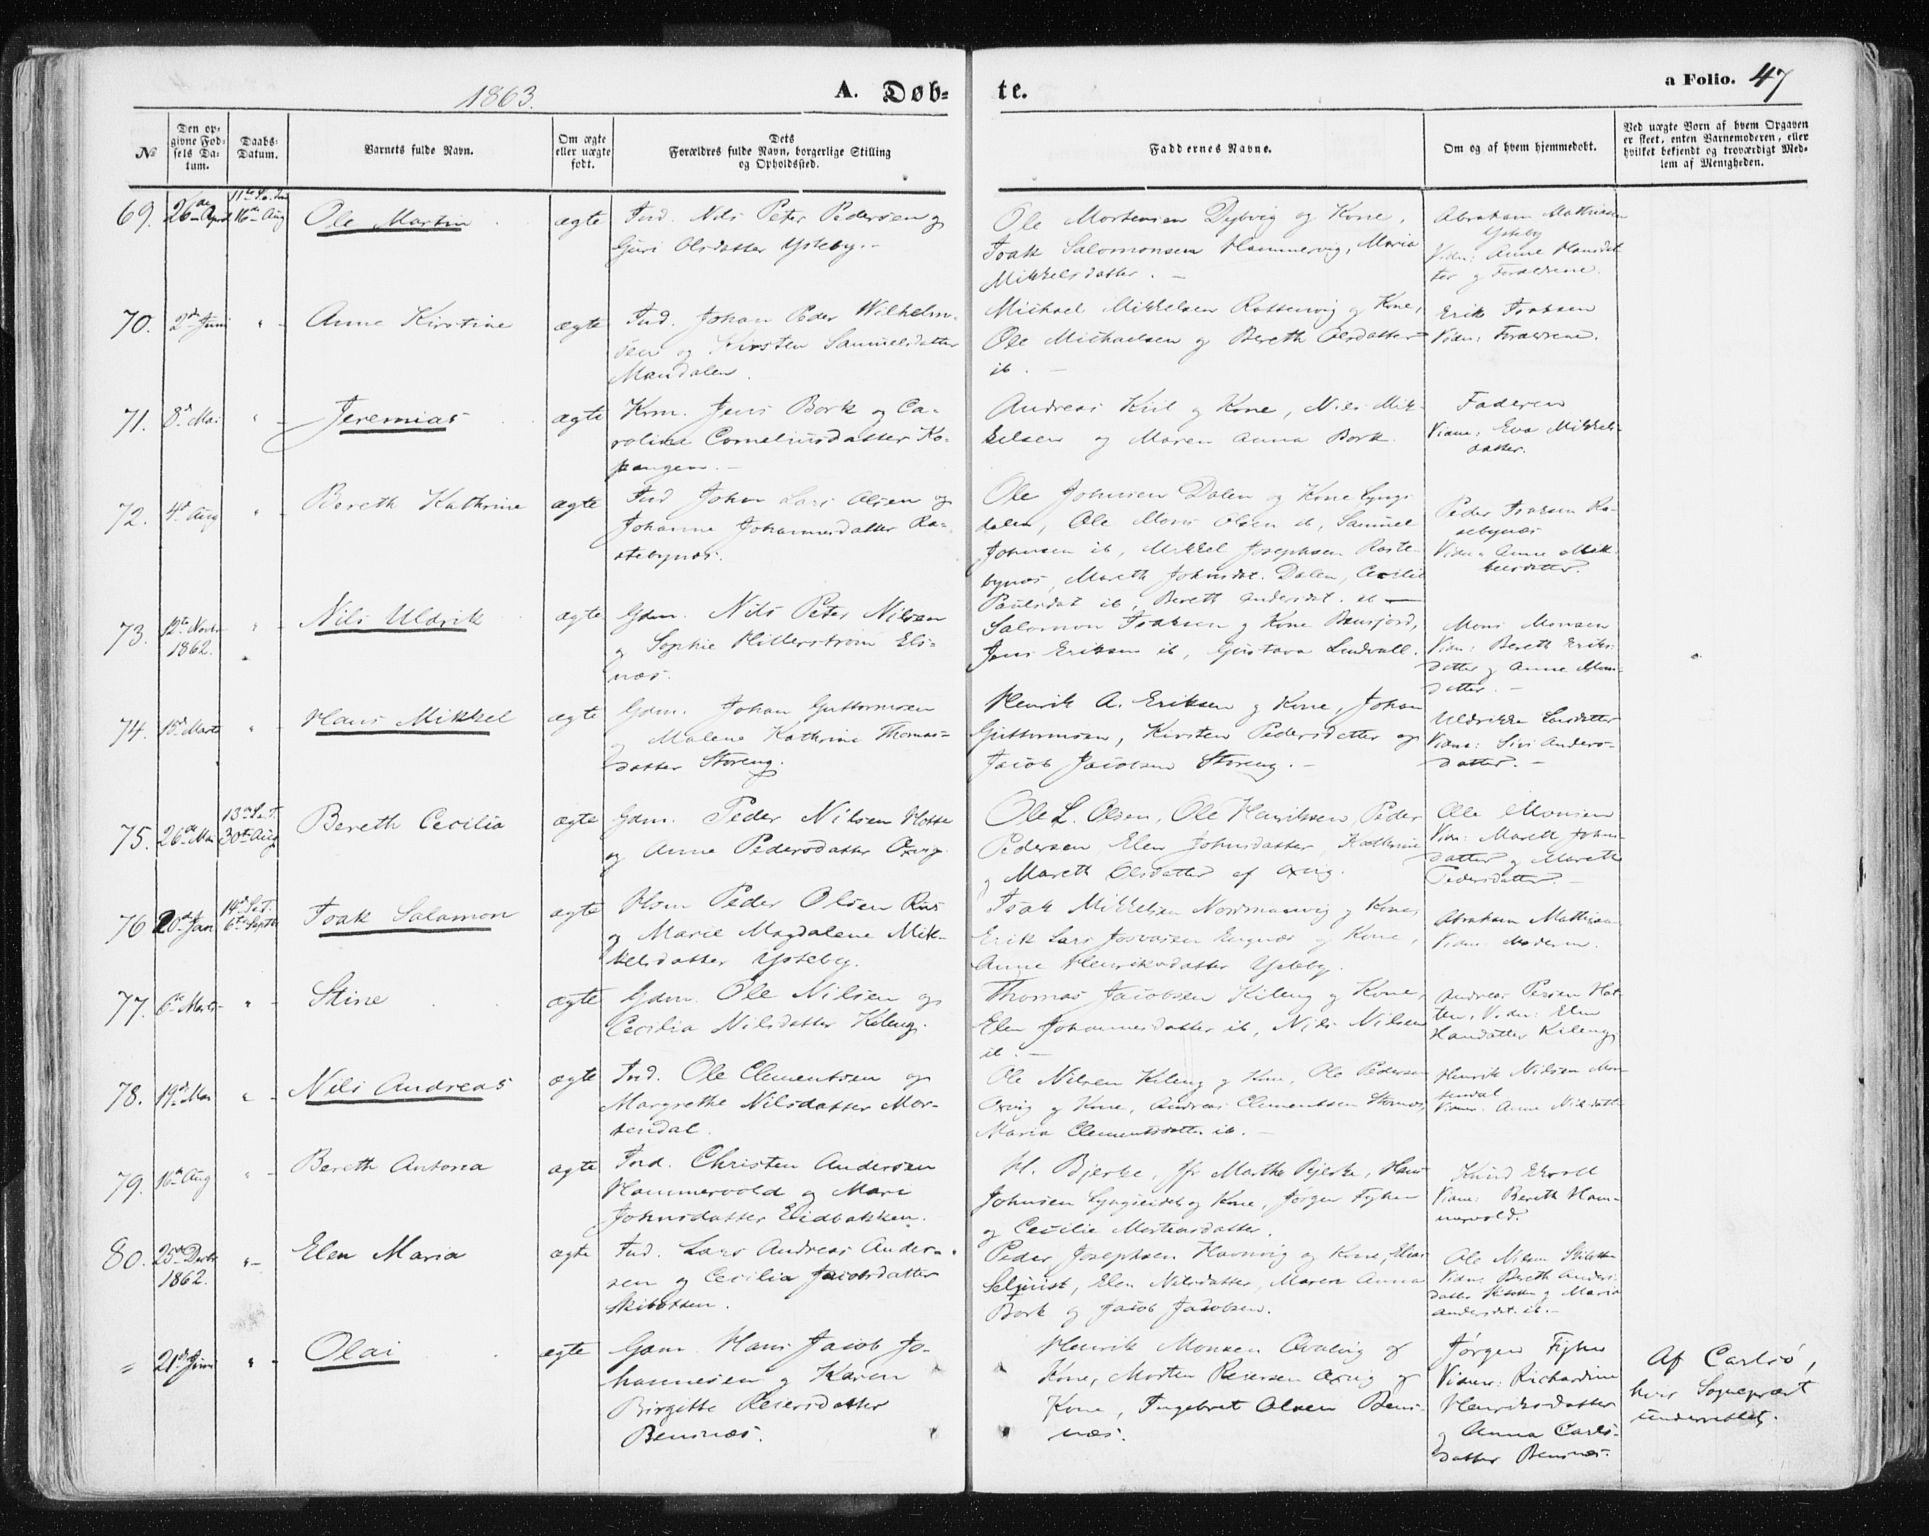 1863.
A. Døb-
te.
a Folio. 47
№
Den op-
givne Fød-
sels Da-
tum.
Daabs-
Datum.
Barnets fulde Navn.
Om ægte
eller uægte
født.
Dets
Forældres fulde Navn, borgerlige Stilling
og Opholdssted.
Faddernes Navne.
Om og af hvem hjemmedøbt.
Ved uægte Børn af hvem Opgaven
er skeet, enten Barnemoderen, eller
hvilket bekjendt og troværdigt Med-
lem af Menigheden.
69. 26de April 16de Aug
Ole Martin
ægte
Ind. Nils Peter Pedersen og
Guri Olsdatter Ysteby.-
Ole Mortensen Dybvig og Kone,
Isak Salomonsen Hammervig, Maria
Mikkelsdatter. -
Abraham Mathisen
Ysteby
Vidn: Anne Hansdat-
ter og Forældrene.
70. 2de Juni " -
Anne Kirstine
ægte
Ind. Johan Peder Wilhelm-
sen og Kirsten Samuelsdatter
Mandalen.
Michael Mikkelsen Rottenvig og Kone,
Ole Michaelsen og Bereth Olsdatter
ib. -
Erik Isaksen
Vidn: Forældrene.
71. 8de Mai " -
Jeremias
ægte
Krm. Jens Bork og Ca-
roline Corneliusdatter Ko-
pangen. -
Andreas Kiil og Kone, Nils Mik-
kelsen og Maren Anna Bork.
Faderen
Vidne: Eva Mikkels-
datter.
72. 4de Aug " -
Bereth Kathrine
ægte
Ind Johan Lars Olsen og
Johanne Johannesdatter Ra-
stebynæs.
Ole Johnsen Dalen og Kone Lyngs-
dalen, Ole Mons Olsen ib, Samuel
Johnsen ib, Mikkel Josephsen Raste-
bynæs, Mareth Johnsdat. Dalen, Cecilie
Paulsdat ib, Bereth Andersdat. ib
Peder Isaksen Ra-
stebynæs
Vidn: Anne Mik-
kelsdatter.
73. 12te Novbr
1862. " -
Nils Uldrik
ægte
Gdm. Nils Peter Nilsen
og Sophie Hillerstrøm Els-
næs.
Salomon Isaksen og Kone Bensjord,
Jens Eriksen ib, Gustava Lindvall.
Mons Monsen
Vidn: Bereth Eriks-
datter og Anne Mons-
datter. -
74. 15de Marts " -
Hans Mikkel
ægte
Gdm. Johan Guttormsen
og Malene Kathrine Thomas-
datter Storeng.
Henrik A. Eriksen og Kone, Johan
Guttormsen, Kirsten Pedersdatter og
Jacob Jacobsen Storeng. -
Uldrikke Larsdatter
Vidne: Siri Anders-
datter. -
75. 26de Mai 30te Aug
Bereth Cecilia
ægte
Gdm. Peder Nilsen Holte
og Anne Pedersdatter Oxvig
Ole L. Olsen, Ole Henriksen, Peder
Pedersen, Elen Johnsdatter, Kathrine
og Mareth Olsdatter af Oxvig.
Ole Monsen
Vidn: Mareth Johns-
datter og Mareth
Pedersdatter. -
76 20de Jan 6te Septbr
Isak Salamon
ægte
Peder Olsen
og Marie Magdalene Mik-
kelsdatter Ysteby.
Isak Mikkelsen Nordmannvig og Kone,
Erik Lars Josvasen Engnæs og Kone,
Anne Henriksdatter Ysteby.
Abraham Mathisen
Vidne: Moderen.
77. 6te Marts " -
Stine
ægte
Gdm. Ole Nilsen og
Cecilia Nilsdatter Kileng.
Thomas Jacobsen Kileng og Kone,
Elen Johannesdatter ib, Nils Nilsen
ib. -
Andreas Persen Hat-
ten, Vidn: Elen
Hansdatter Kileng
78. 19de Mai " -
Nils Andreas
ægte
Ind. Ole Clementsen og
Margrethe Nilsdatter Mor-
tendal.
Ole Nilsen Kileng og Kone, Ole Pedersen
Oxvig og Kone, Andreas Clementsen Stornæs,
Maria Clementsdatter ib. -
Henrik Nilsen Mor-
tendal
Vidne: Anne Nilsdatter
79. 16de Aug " -
Bereth Antona
ægte
Ind. Christen Andersen
Hammervold og Mari
Johnsdatter Eidbakken.
H. Bjerke, fr Marthe Bjerke, Hans
Johnsen Lyngseidet og Kone, Jørgen Fyhn
og Cecilie Mortensdatter.
Knud
Vidne: Bereth Ham-
mervold.
80. 25de Decbr
1862. " -
Elen Maria
ægte
Ind. Lars Andreas Ander-
sen og Cecilia Jacobsdatter
Skibotten.
Peder Josephsen Havnvig og Kone, Elias
Selquist, Elen Nilsdatter, Maren Anna
Bork og Jacob Jacobsen.
Ole Nilsen Skibotten
Vidne Bereth Anders-
datter Skibotten og Maria
Andersdat. ib. -
" 21de Juni " -
Olai
ægte
Gdm. Hans Jacob Jo-
hannesen og Karen
Birgitte Peiersdatter
Bensnæs.
Henrik Monsen Qvalvig og
Kone, Morten Peiersen Oxvig og
Kone, Ingebret Olsen Bens-
næs.
Jørgen Fyhn
Vidne: Richardine
Henriksdatter
og Anna Carls-
datter Bensnæs.
Af Carlsø,
hvis Sognepræst
underrettet.